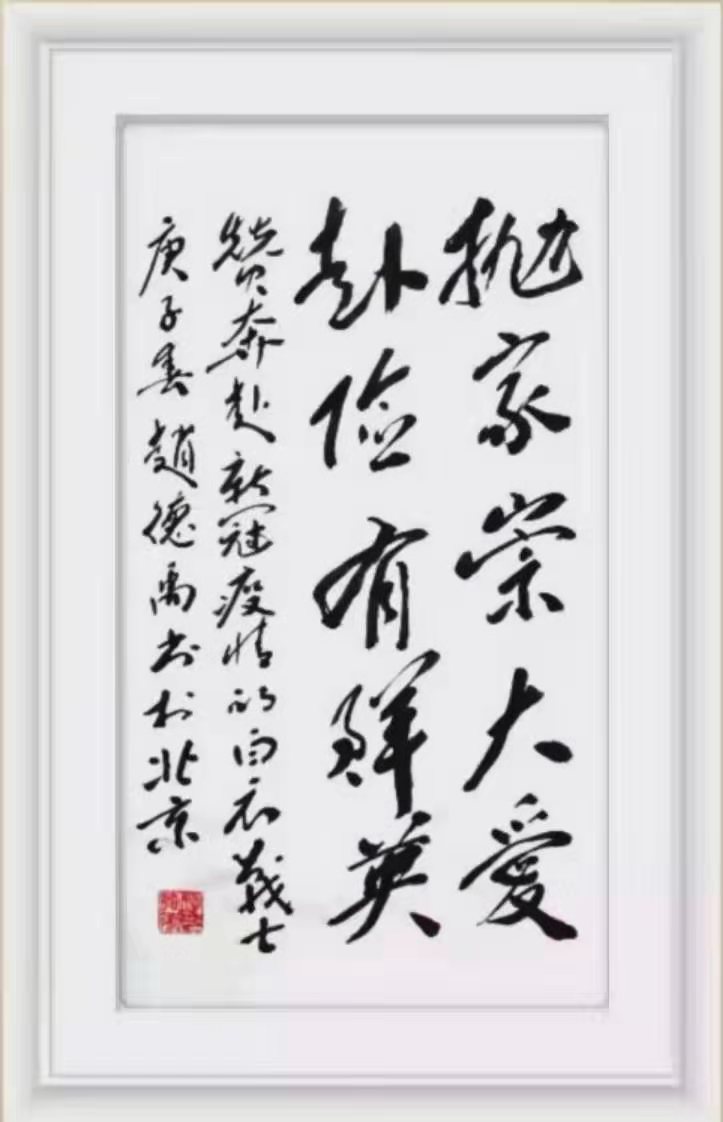 抛家崇大爱
赴险有群英
赞奔赴新冠疫情的白衣义士
庚子春趙德禹书於北京